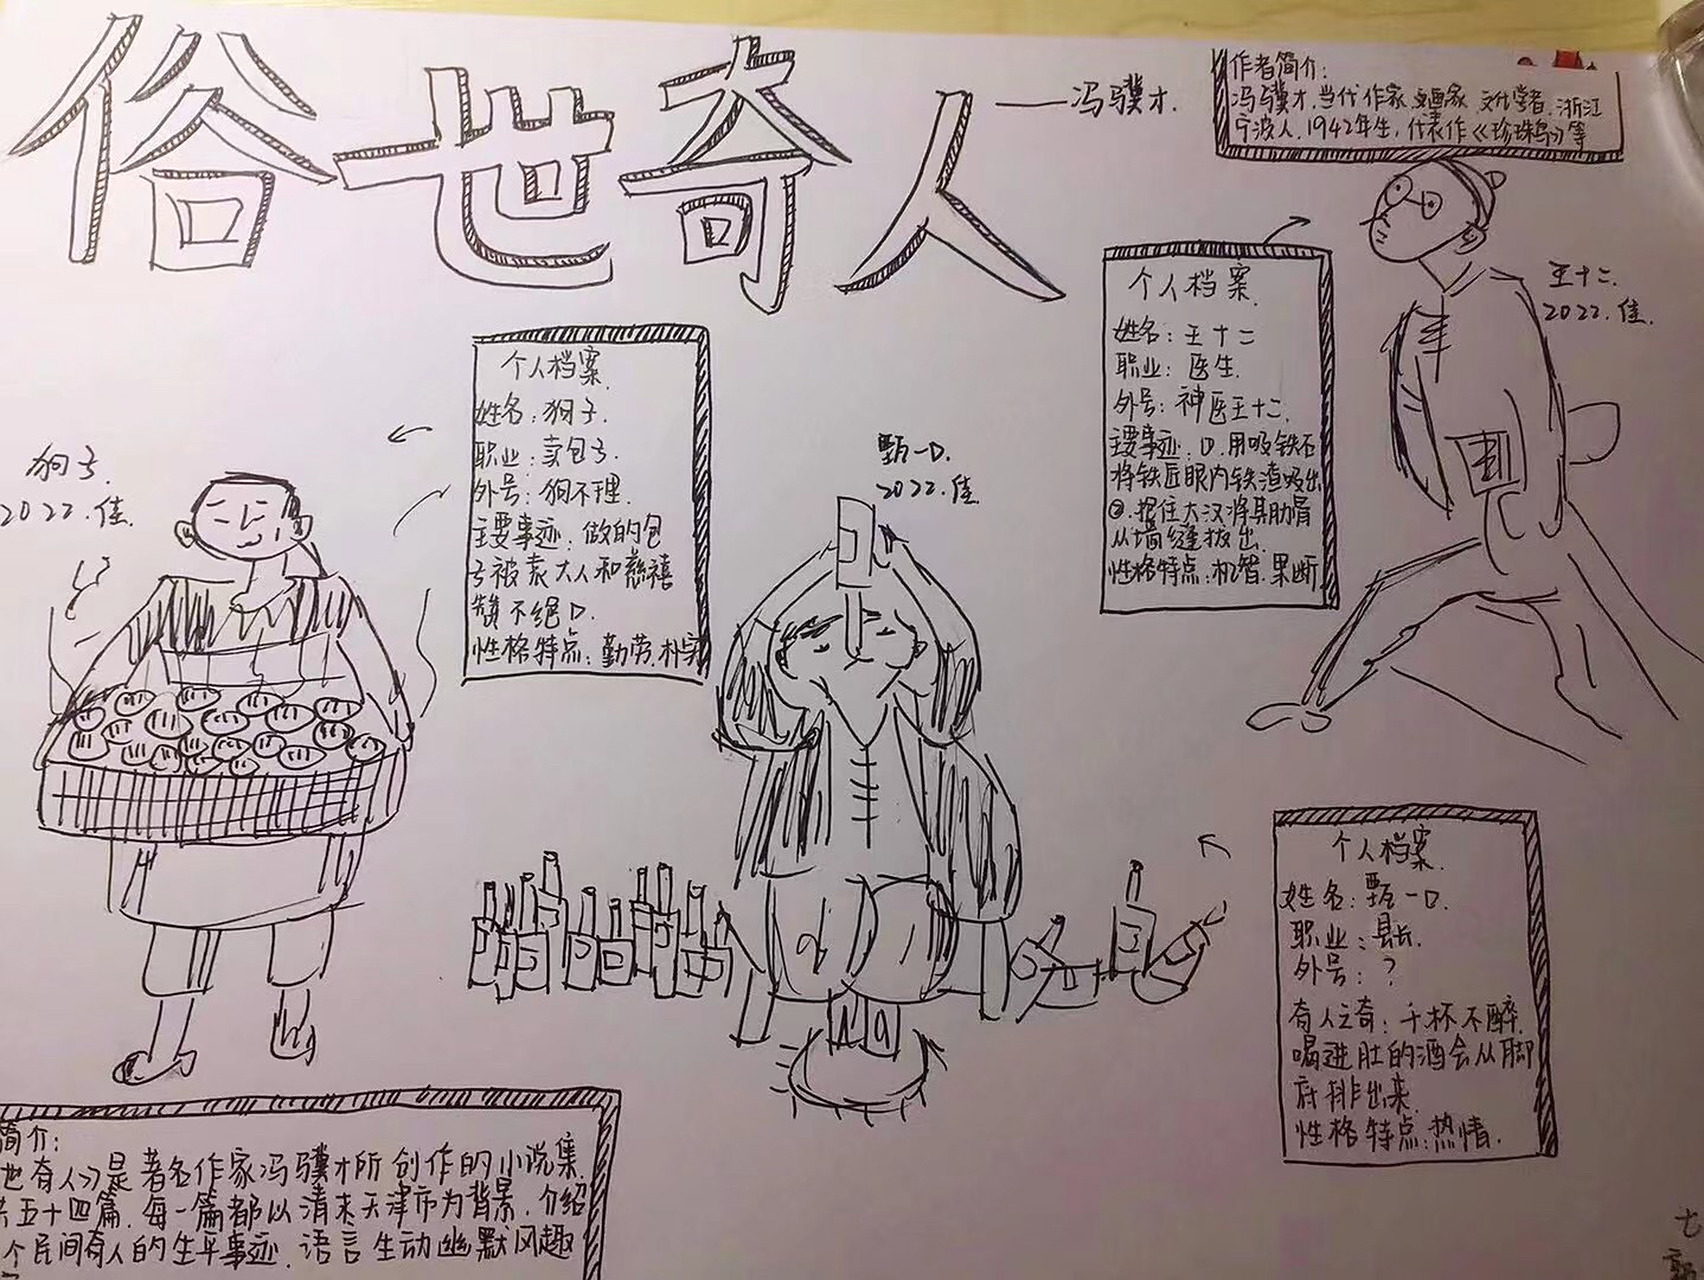 俗世奇人
——冯骥才.
作者简介:
冯骥才.当代作家.画家.文化学者.浙江
宁波人.1942年生,代表作《珍珠鸟》等
个人档案.
姓名:王十二
职业:医生.
外号:神医王十二.
主要事迹:①.用吸铁石
将铁匠眼内铁渣吸出
②.把住大汉将其肋骨
从墙缝拔出.
性格特点:机智.果断
王十二.
2022.佳.
个人档案.
姓名:狗子.
职业:卖包子.
外号:狗不理.
主要事迹:做的包
子被袁大人和慈禧
赞不绝口.
性格特点:勤劳.朴实
狗子.
2022.佳.
甄一口.
2022.佳.
个人档案.
姓名:甄一口.
职业:县长.
外号:?
奇人之奇:千杯不醉.
喝进肚的酒会从脚
底排出来.
性格特点:热情.
简介:
世奇人》是著名作家冯骥才所创作的小说集.
共五十四篇.每一篇都以清末天津市为背景.介绍
个民间奇人的生平事迹.语言生动幽默风趣
七